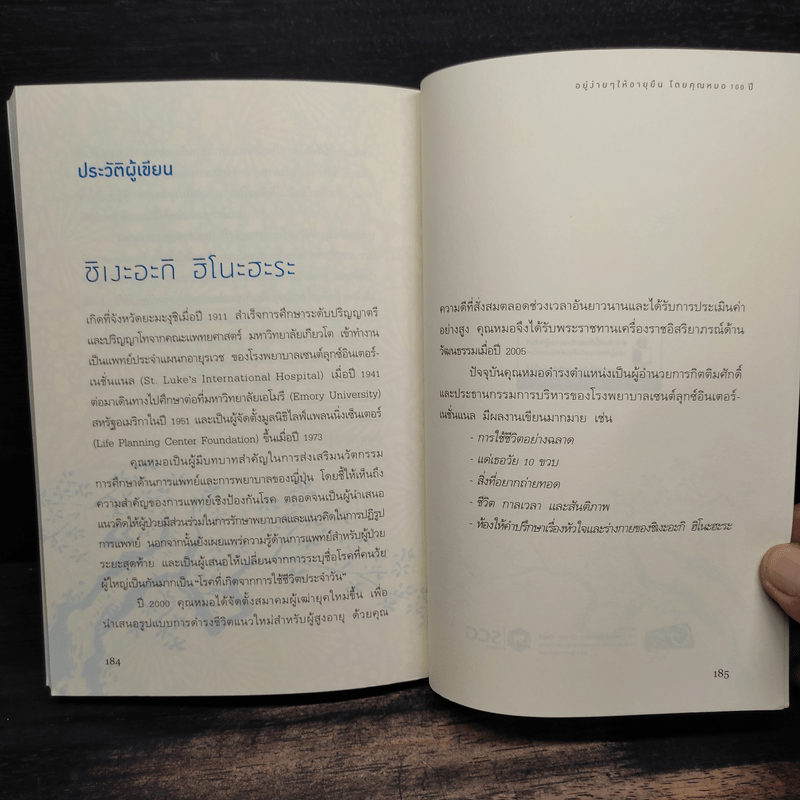 ประวัติผู้เขียน
ชิเงะอะกิ ฮิโนะฮะระ
เกิดที่จังหวัดยะมะงุชิเมื่อปี 1911 สำเร็จการศึกษาระดับปริญญาตรี
และปริญญาโทจากคณะแพทยศาสตร์ มหาวิทยาลัยเกียวโต เข้าทำงาน
เป็นแพทย์ประจำแผนกอายุรเวช ของโรงพยาบาลเซนต์ลุกซ์อินเตอร์-
เนชั่นแนล (St. Luke's International Hospital) เมื่อปี 1941
ต่อมาเดินทางไปศึกษาต่อที่มหาวิทยาลัยเอโมรี (Emory University)
สหรัฐอเมริกาในปี 1951 และเป็นผู้จัดตั้งมูลนิธิไลฟ์แพลนนิ่งเซ็นเตอร์
(Life Planning Center Foundation) ขึ้นเมื่อปี 1973
คุณหมอเป็นผู้มีบทบาทสำคัญในการส่งเสริมนวัตกรรม
การศึกษาด้านการแพทย์และการพยาบาลของญี่ปุ่น โดยชี้ให้เห็นถึง
ความสำคัญของการแพทย์เชิงป้องกันโรค ตลอดจนเป็นผู้นำเสนอ
แนวคิดให้ผู้ป่วยมีส่วนร่วมในการรักษาพยาบาลและแนวคิดในการปฏิรูป
การแพทย์ นอกจากนั้นยังเผยแพร่ความรู้ด้านการแพทย์สำหรับผู้ป่วย
ระยะสุดท้าย และเป็นผู้เสนอให้เปลี่ยนจากการระบุชื่อโรคที่คนวัย
ผู้ใหญ่เป็นกันมากเป็น "โรคที่เกิดจากการใช้ชีวิตประจำวัน"
ปี 2000 คุณหมอได้จัดตั้งสมาคมผู้เฒ่ายุคใหม่ขึ้น เพื่อ
นำเสนอรูปแบบการดำรงชีวิตแนวใหม่สำหรับผู้สูงอายุ ด้วยคุณ
184
อยู่ง่ายๆให้อายุยืน โดยคุณหมอ 100 ปี
ความดีที่สั่งสมตลอดช่วงเวลาอันยาวนานและได้รับการประเมินค่า
อย่างสูง คุณหมอจึงได้รับพระราชทานเครื่องราชอิสริยาภรณ์ด้าน
วัฒนธรรมเมื่อปี 2005
ปัจจุบันคุณหมอดำรงตำแหน่งเป็นผู้อำนวยการกิตติมศักดิ์
และประธานกรรมการบริหารของโรงพยาบาลเซนต์ลุกซ์อินเตอร์-
เนชั่นแนล มีผลงานเขียนมากมาย เช่น
- การใช้ชีวิตอย่างฉลาด
- แด่เธอวัย 10 ขวบ
- สิ่งที่อยากถ่ายทอด
- ชีวิต กาลเวลา และสันติภาพ
- ห้องให้คำปรึกษาเรื่องหัวใจและร่างกายของชิเงะอะกิ ฮิโนะฮะระ
185